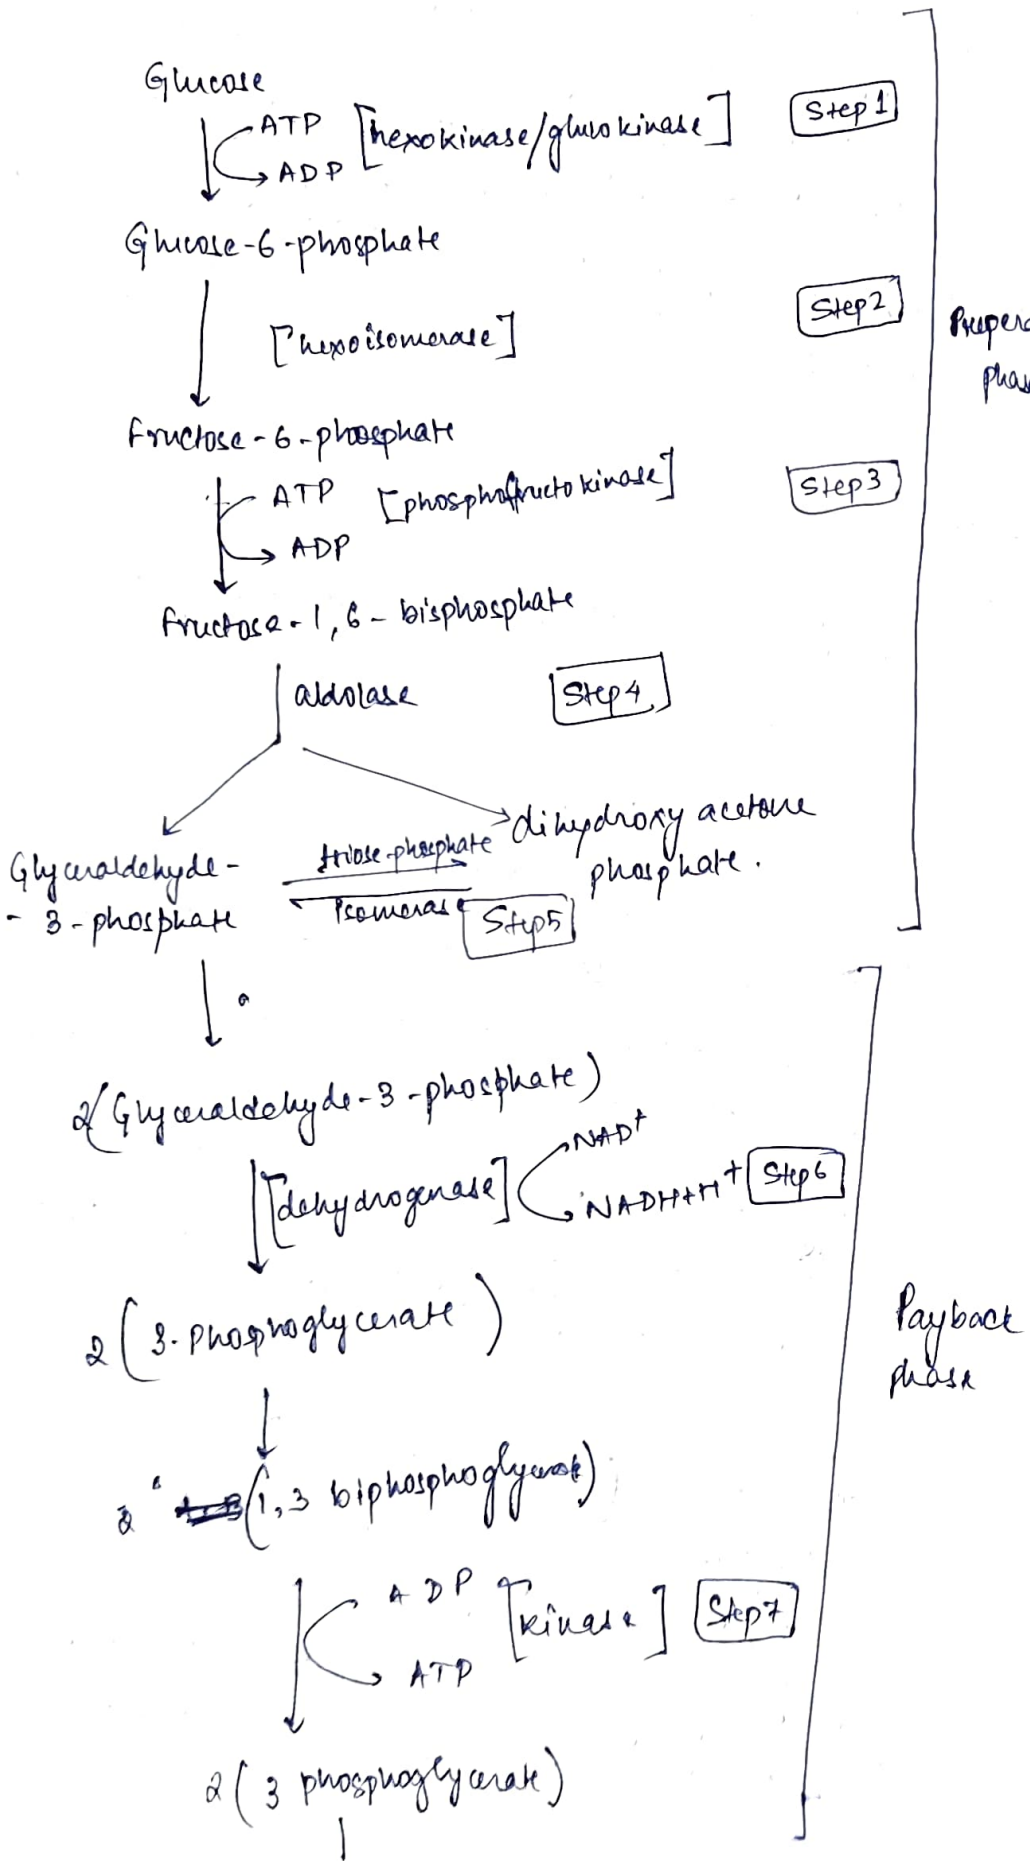 Glucose
ATP [hexokinase/glucokinase] Step 1
ADP
Glucose-6-phosphate
[hexoisomerase] Step 2
Prepera
phas
Fructose-6-phosphate
ATP [phosphofructokinase] Step 3
ADP
Fructose-1,6-bisphosphate
aldolase Step 4
Glyceraldehyde-
- 3-phosphate
triose-phosphate
Isomerase Step 5
dihydroxy acetone
phosphate.
2(Glyceraldehyde-3-phosphate)
[dehydrogenase] NAD+
NADH+H+ Step 6
2(3-phosphoglycerate)
Payback
phase
2 (1,3 biphosphoglycerate)
ADP [kinase] Step 7
ATP
2(3 phosphoglycerate)